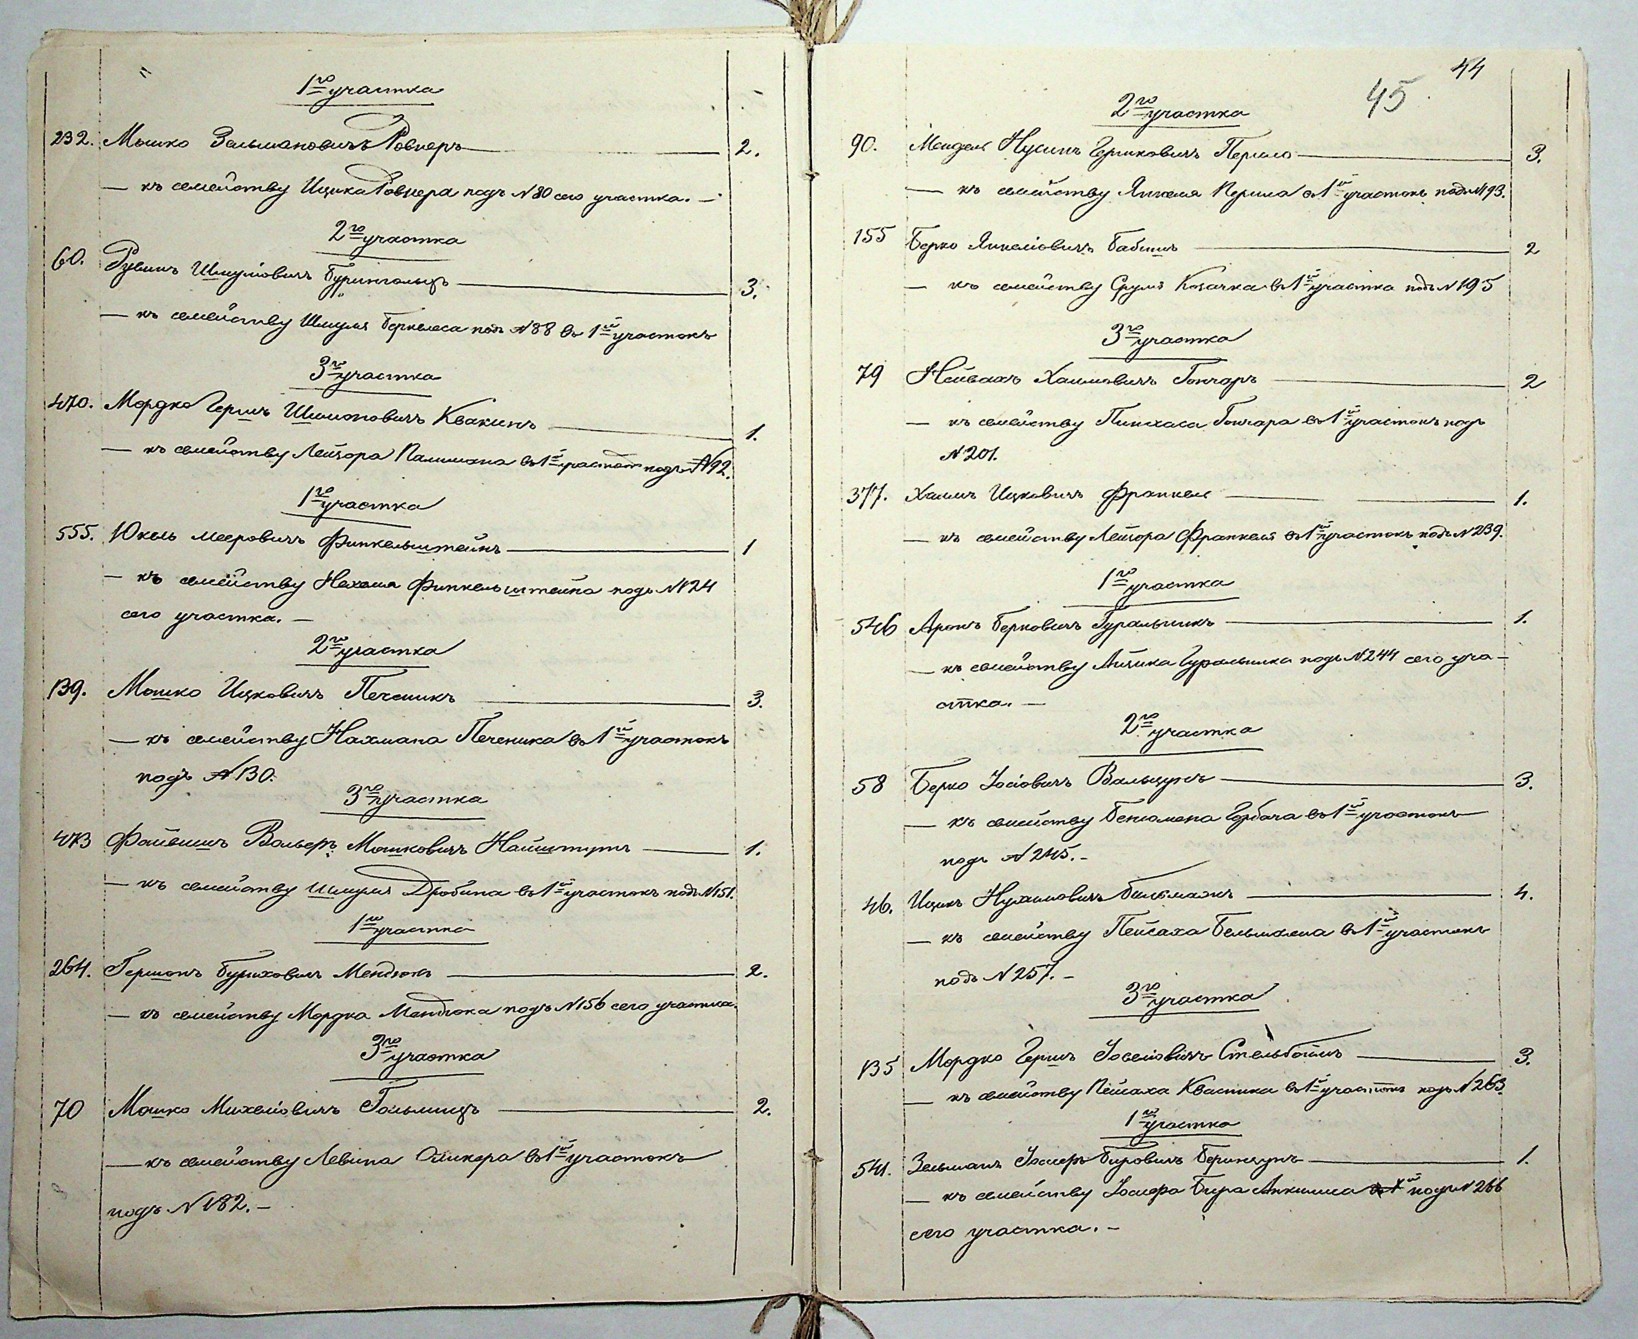 1го участка
232. Мошко Зельмановичъ Ровнеръ 2.
— къ семейству Ицика Ровнера подъ №80 сего участка. —
2го участка
60. Рувинъ Шмулiовичъ 3.
— къ семейству Шмуля Беркелеса подъ №88 въ 1й участокъ
3го участка
470. Мордко Гершъ Шимоновичъ Квакинъ 1.
— къ семейству Лейзора въ 1й участокъ подъ №92.
1го участка
555. Юкель Мееровичъ Финкельштейнъ 1
— къ семейству Нахмана Финкельштейна подъ №124
сего участка. —
2го участка
139. Мошко Ицковичъ Печеникъ 3.
— къ семейству Нахмана Печеника въ 1й участокъ
подъ №130.
3го участка
473 Файвишъ Вольфъ Мошковичъ 1.
— къ семейству Шмуля Дробина въ 1й участокъ подъ №151.
1го участка
264. Гершонъ Буриховичъ Мендюкъ 2.
— къ семейству Мордка Мендюка подъ №156 сего участка.
3го участка
70 Мошко Михелiовичъ 2.
— къ семейству Левина въ 1й участокъ
подъ №182. —
44
45
2го участка
90. Мендель Нусинъ Гершковичъ Перило 3.
— къ семейству Янкеля Перила въ 1й участокъ подъ №193.
155 Берко Янкелiовичъ Бабишъ 2
— къ семейству Сруля Козачка въ 1й участка подъ №195
3го участка
79 Нейвахъ Хаимовичъ Гончаръ 2
— къ семейству Пинхаса Гончара въ 1й участокъ подъ
№201.
377. Хаимъ Ицковичъ Франкель 1.
— къ семейству Лейзора Франкеля въ 1й участокъ подъ №239.
1го участка
546 Аронъ Берковичъ Гуральникъ 1.
— къ семейству Айзика Гуральника подъ №244 сего уча-
стка. —
2го участка
58 Берко Iосiовичъ 3.
— къ семейству Бенiамена Горбача въ 1й участокъ
подъ №245. —
46. Ицикъ Нухимовичъ Бельмахъ 4.
— къ семейству Пейсаха въ 1й участокъ
подъ №257. —
3го участка
135 Мордко Гершъ Iоселiовичъ Стельбоймъ 3.
— къ семейству Пейсаха Квасника въ 1й участокъ подъ №263.
1го участка
541. Зельманъ Iосифъ Беровичъ 1.
— къ семейству Iосифа Бера подъ №266
сего участка. —